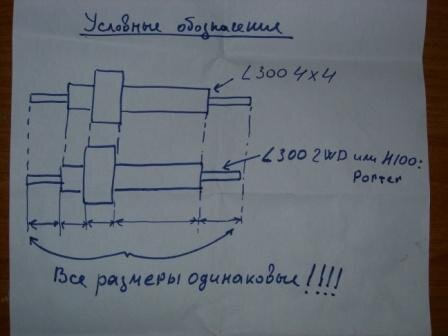 Условные обозначения
L300 4x4
L300 2WD или H100:
Porter
Все размеры одинаковые!!!!